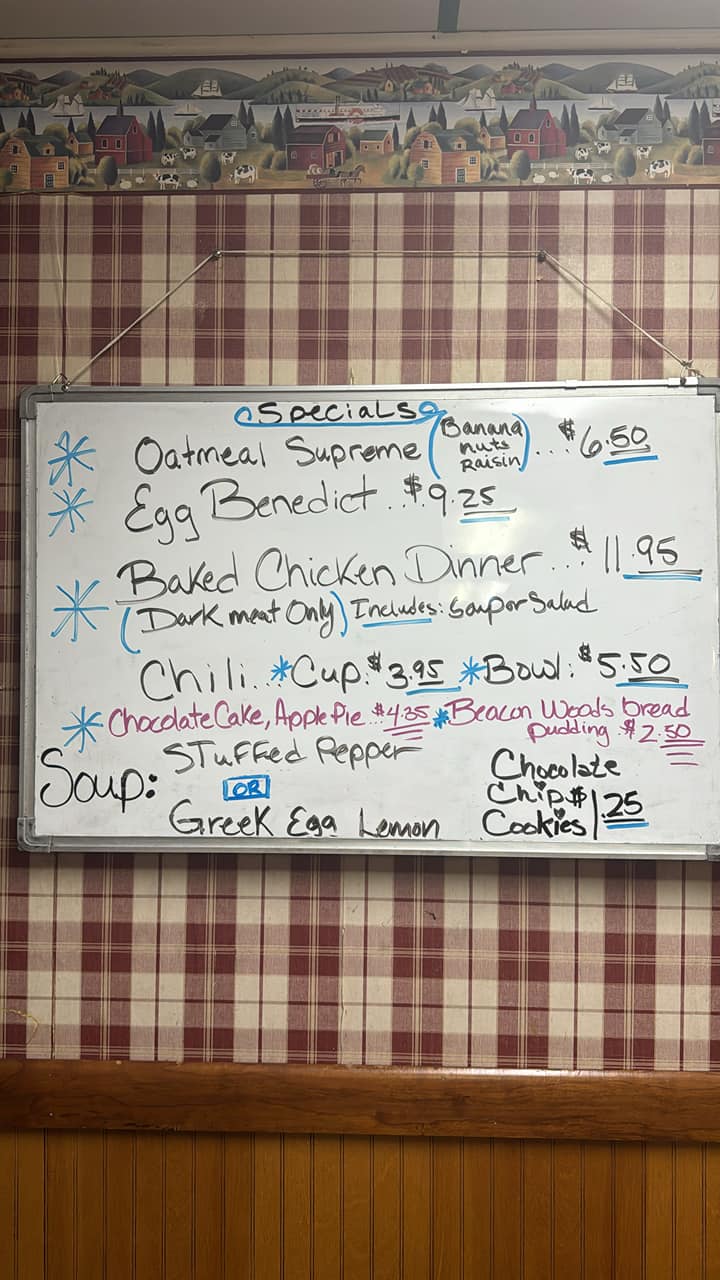 Specials
* Oatmeal Supreme (Banana nuts Raisin) ... $6.50
* Egg Benedict .. $9.25
Baked Chicken Dinner ... $11.95
* (Dark meat Only) Includes: Soup or Salad
Chili... *Cup: $3.95 *Bowl: $5.50
* Chocolate Cake, Apple Pie .. $4.35 * Beacon Woods bread pudding $2.50
Soup: Stuffed Pepper
OR
Greek Egg Lemon
Chocolate
Chip $1.25
Cookies